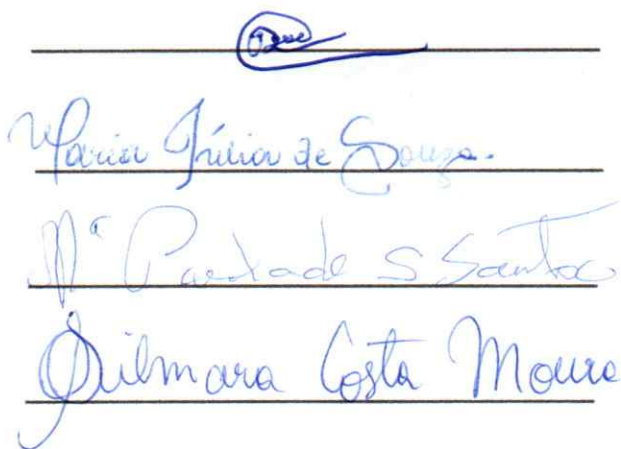 Maria Júlia de Souza.
Mª S Santos
Gilmara Costa Moura